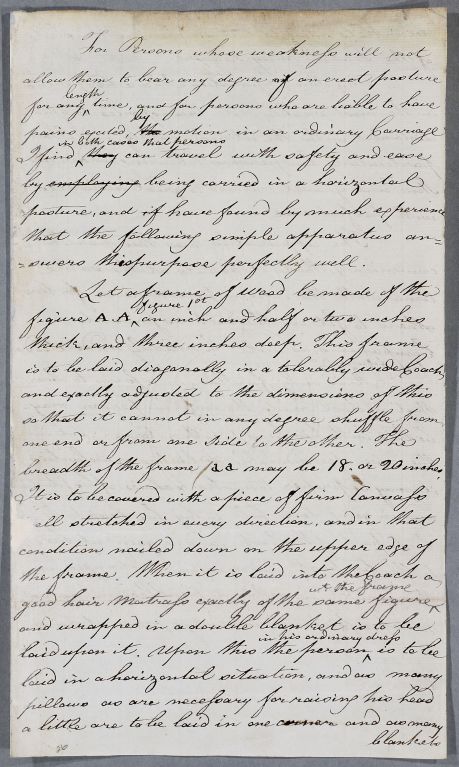 For Persons whose weakness will not
allow them to bear any degree of an erect posture
for any length time, and for persons who are liable to have
pains excited, by the motion in an ordinary Carriage
I find, in both cases that persons they can travel with safety and ease
by employing being carried in a horizontal
posture, and if have found by much experience
that the following simple apparatus an=
=swers this purpose perfectly well.
Let a frame of wood be made of the
figure A.A. figure 1st an inch and half or two inches
thick, and three inches deep. This frame
is to be laid diagonally in a tolerably wide Coach,
and exactly adjusted to the dimensions of this
so that it cannot in any degree shuffle from
one end or from one side to the other. The
breadth of the frame AA may be 18. or 20 inches.
It is to be covered with a piece of firm Canvass
ell stretched in every direction, and in that
condition nailed down on the upper edge of
the frame. When it is laid into the Coach a
good hair Matrass exactly of the same figure wt. the frame
and wrapped in a double blanket is to be
laid upon it. Upon this the person in his ordinary dress is to be
laid in a horizontal situation, and as many
pillows as are necessary for raising his head
a little are to be laid in one corner and as many
blankets